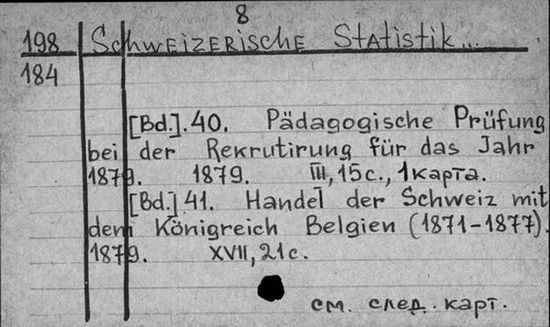 8
198 Schweizerische Statistik...
184
[Bd.].40. Pädagogische Prüfung
bei der Rekrutirung für das Jahr
1879. 1879. III, 15 с., 1 карта.
[Bd.] 41. Handel der Schweiz mit
dem Königreich Belgien (1871-1877).
1879. XVII, 21 с.
см. след. карт.